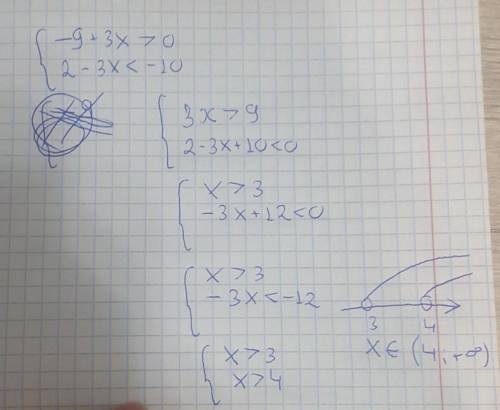 -9+3x>0
2-3x<-10
3x>9
2-3x+10<0
x>3
-3x+12<0
x>3
-3x<-12
3 4
x∈(4;+∞)
x>3
x>4